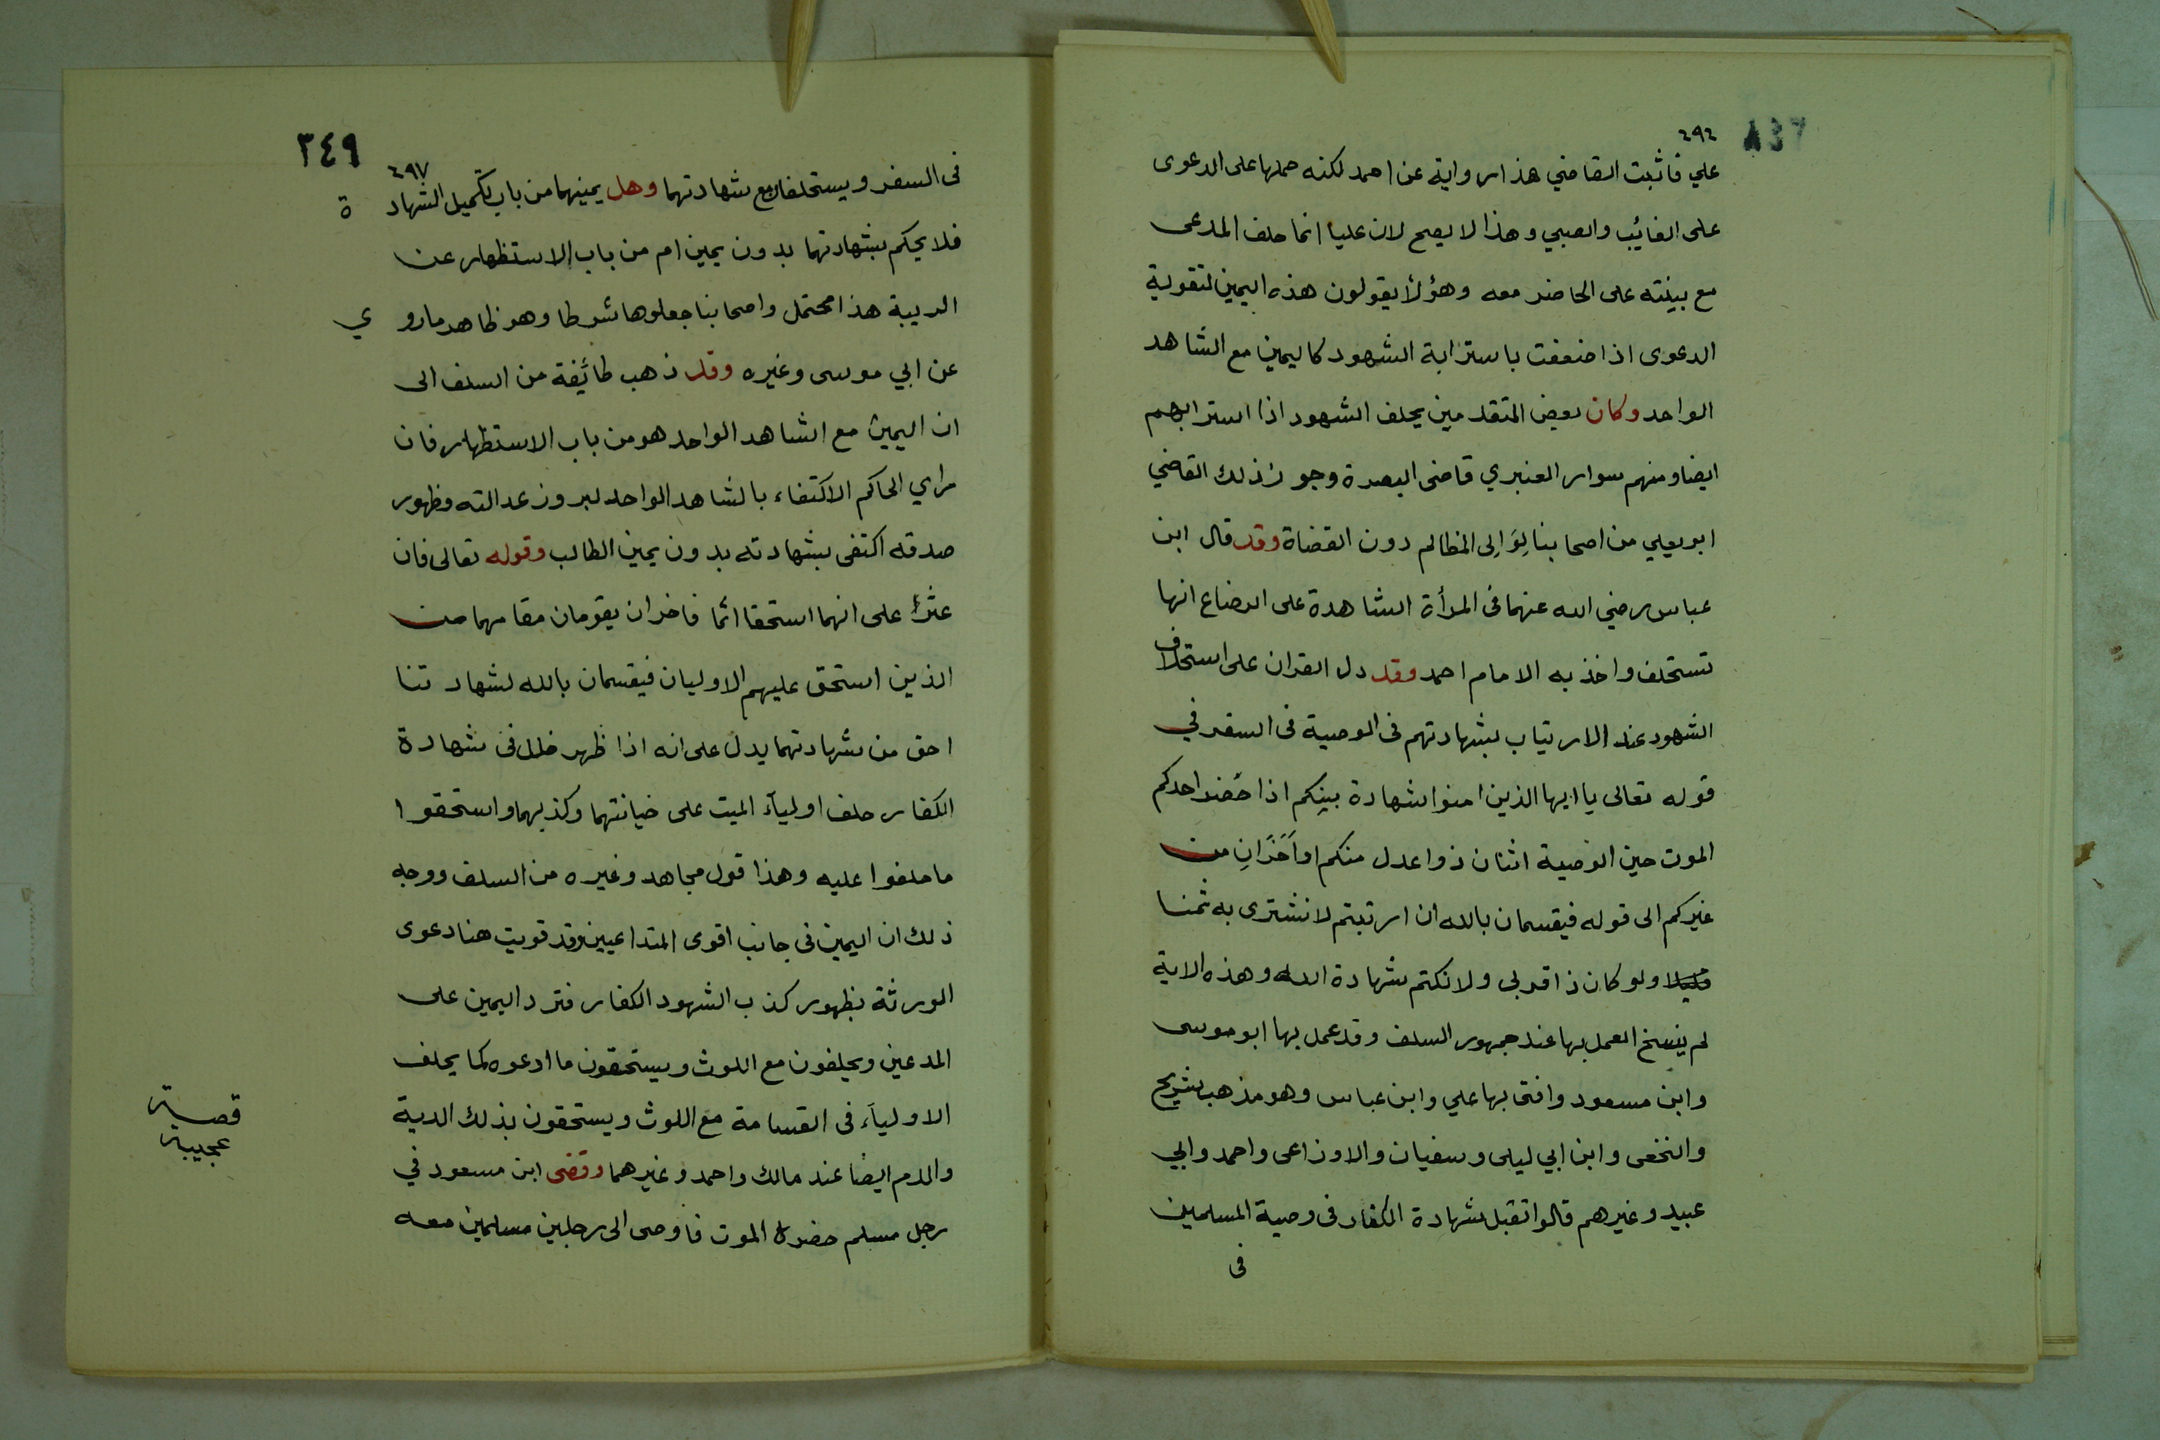 ٤٩٤
علي فاثبت القاضي هذا الرواية عن احمد لكنه حملها على الدعوى
على الغائب والصبي وهذا لا يصح لان عليا انما حلف المدعى
مع بينته على الحاضر معه وهؤلأ يقولون هذه اليمين لتقوية
الدعوى اذا ضعفت باسترابة الشهود كاليمين مع الشاهد
الواحد وكان بعض المتقدمين يحلف الشهود اذا استرابهم
ايضا ومنهم سوار العنبري قاضى البصرة وجوز ذلك القاضي
ابو يعلي من اصحابنا لِوَالِى المظالم دون القضاة وقد قال ابن
عباس رضي الله عنهما فى المرأة الشاهدة على الرضاع انها
تستحلف واخذ به الامام احمد وقد دل القران على استحلاف
الشهود عند الارتياب بشهادتهم فى الوصية فى السفر في
قوله تعالى يا ايها الذين امنوا شهادة بينِكم اذا حَضر احدكم
الموت حين الوَصية اثنان ذوا عدل منكم اواَخَرَانِ من
غيركم الى قوله فيقسمان بالله ان ارتبتم لا نشترى به ثمنا
قليلا ولو كان ذا قربى ولا نكتم شهادة الله وهذه الاية
لم ينسخ العمل بها عند جمهور السلف وقد عمل بها ابو موسى
وابن مسعود وافتى بها علي وابن عباس وهو مذهب شريح
والنخعى وابن ابي ليلى وسفيان والاوزاعى واحمد وابي
عبيد وغيرهم قالوا تقبل شهادة الكفار فى وصية المسلمين
فى
٣٤٩
٤٩٧
فى السفر ويستحلفان مع شهادتهما وهل يمينهما من باب تكميل الشهادة
فلا يحكم بشهادتهما بدون يمين ام من باب الاستظهار عن
الريبة هذا محتمل واصحابنا جعلوها شرطا وهو ظاهر ماروي
عن ابي موسى وغيره وقد ذهب طائفة من السلف الى
ان اليمين مع الشاهد الواحد هو من باب الاستظهار فان
راي الحاكم الاكتفاء بالشاهد الواحد لبروز عدالته وظهور
صدقه اكتفى بشهادته بدون يمين الطالب وقوله تعالى فان
عثر على انهما استحقا اثما فاخران يقومان مقامهما من
الذين استحق عليهم الاوليان فيقسمان بالله لشهادتنا
احق من شهادتهما يدل على انه اذا ظهر خلل فى شهادة
الكفار حلف اوليآء الميت على خيانتهما وكذبهما واستحقوا
ما حلفوا عليه وهذا قول مجاهد وغيره من السلف ووجه
ذلك ان اليمين فى جانب اقوى المتداعيين وقد قويت هنا دعوى
الورثة بظهور كذب الشهود الكفار فترد اليمين على
المدعين ويحلفون مع اللوث ويستحقون ما ادعوه كما يحلف
الاوليآء فى القسامة مع اللوث ويستحقون بذلك الدية
والدم ايضا عند مالك واحمد وغيرهما وقضى ابن مسعود في
رجل مسلم حضره الموت فاوصى الى رجلين مسلمين معه
قصة
عجيبة